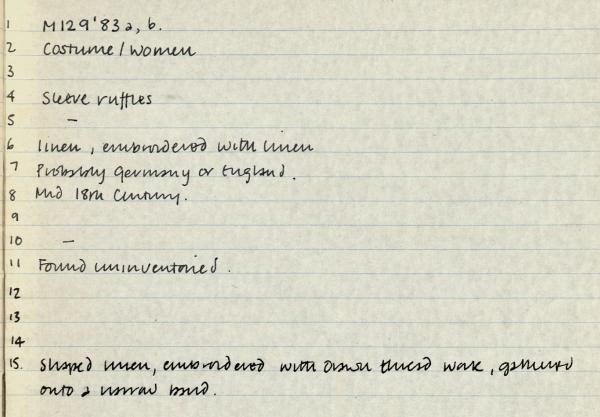 1 M129'83 a, b.
2 Costume / Women
3
4 Sleeve ruffles
5 —
6 linen, embroidered with linen
7 Probably Germany or England.
8 Mid 18th Century.
9
10 —
11 Found uninventoried.
12
13
14
15. Shaped linen, embroidered with drawn thread work, gathered
onto a narrow band.